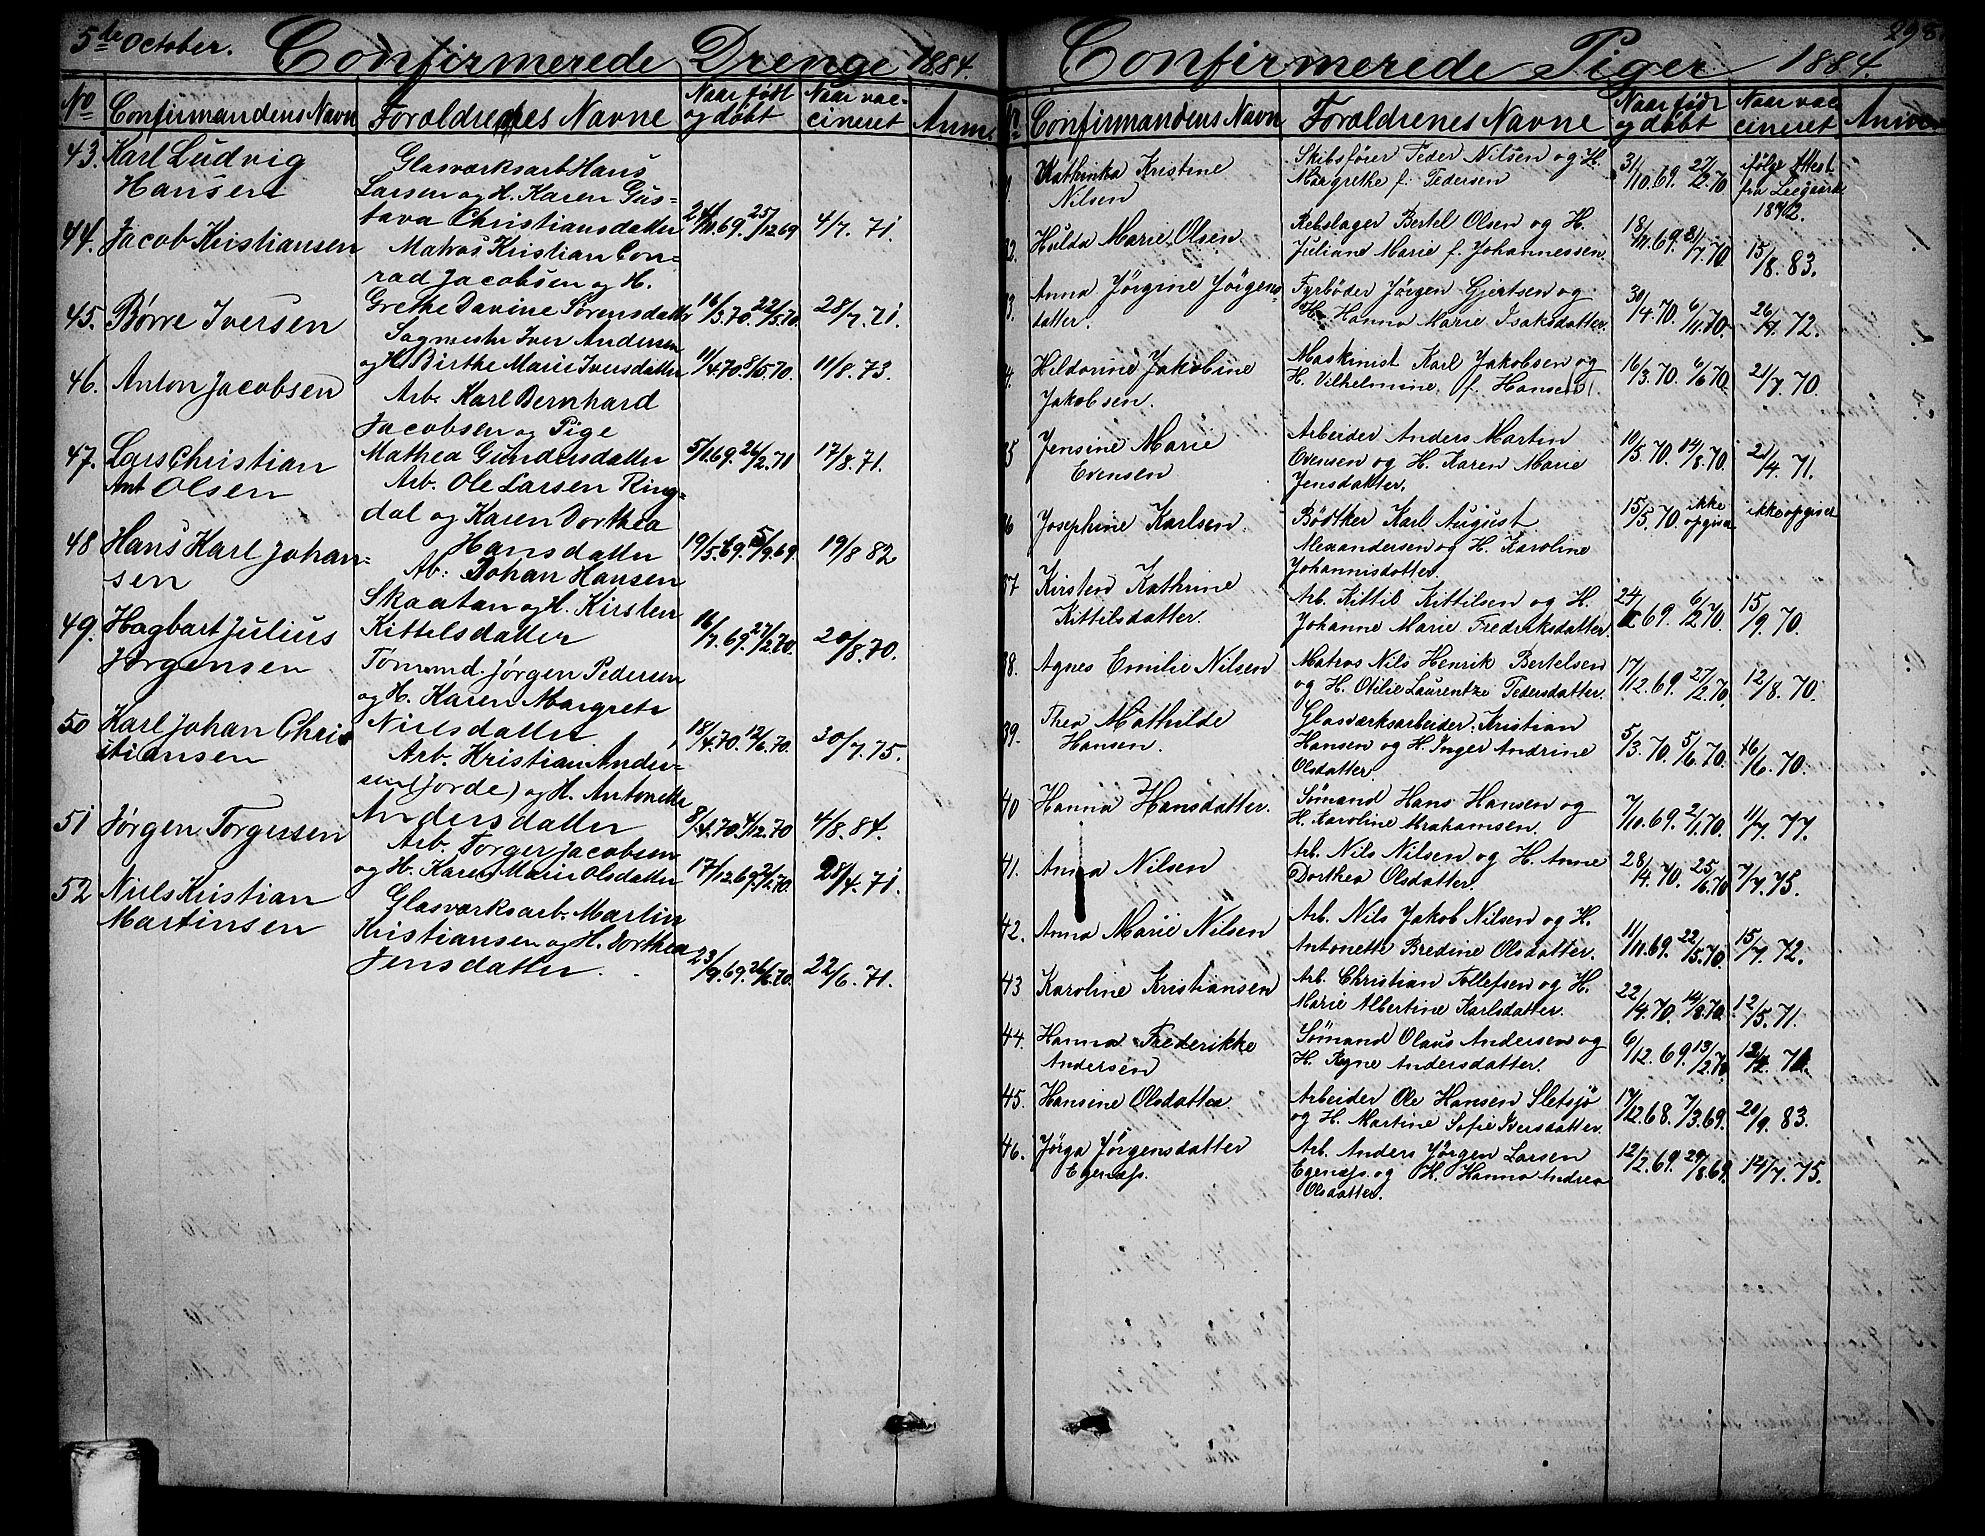 5te October. Confirmerede Drenge 1884.
No Confirmandens Navn Forældrenes Navne Naar født og døbt Naar vaccineret Anm.
43. Karl Ludvig
Hansen
Glasværksarb Hans
Larsen og H. Karen Gus=
tava Christiansdatter 24/10 69. 25/12 69 4/7. 71.
44. Jacob Kristiansen
Matros Kristian Con=
rad Jacobsen og H.
Grethe Davine Sørensdatter 16/3.70. 22/5.70. 28/7.71.
45. Børre Iversen
Sagmestr Iver Andersen
og H. Birthe Marie Iversdatter 11/4.70. 8/5.70. 11/8.73.
46. Anton Jacobsen
Arb. Karl Bernhard
Jacobsen og Pige
Mathea Gundersdatter 5/11.69. 26/2.71 17/8.71.
47. Lars Christian
Ant Olsen
Arb. Ole Larsen Ring=
dal og Karen Dorthea
Hansdatter 19/5.69. 5/9.69 19/8 82
48 Hans Karl Johan=
sen
Ab: Johan Hansen
Skaatan og H. Kirsten
Kittelsdatter 16/7.69. 27/2.70. 20/8.70.
49. Hagbart Julius
Jørgensen
Tømmd. Jørgen Pedersen
og H. Karen Margrete
Nielsdatter. 18/4.70. 12/6.70. 30/7.75.
50 Karl Johan Chris
stiansen
Arb. Kristian Ander=
sen (Jorde) og H. Antonette
Andersdatter 8/4.70. 4/12.70 4/8.84.
51 Jørgen Torgersen
Arb. Torger Jacobsen
og H. Karen Marie Olsdatter 17/12.69. 27/2.70. 28/4.71.
52 Niels Kristian
Martinsen
Glasværksarb. Martin
Kristiansen og H. Dorthea
Jensdatter. 23/9.69. 26/6.70. 22/6.71.
Confirmerede Piger 1884. 298.
No Confirmandens Navn Forældrenes Navne Naar født og døbt Naar vaccineret
Kathinka Kristine
Nilsen
Skibsfører Peder Nilsen og H.
Margrethe f. Pedersen 31/10.69. 27/2.70 ifølge Attest
fra
Hulda Marie Olsen
Rebslager Bertel Olsen og H.
Juliane Marie f. Johannessen. 18/11.69. 31/7.70. 15/8.83.
Anna Jörgine Jörgens=
datter.
Fyrböder Jörgen Gjertsen og
H. Hanna Marie Isaksdatter. 30/4.70. 6/11.70. 26/7.72.
Hildonine Jakobine
Jakobsen.
Maskinist Karl Jakobsen og
H. Vilhelmine f. Hansen 16/3.70. 6/6 70. 21/7.70.
35 Jensine Marie
Evensen
Arbeider Anders Martin
Evensen og H. Karen Marie
Jensdatter. 10/5.70. 14/8.70. 21/4.71.
36 Josephine Karlsen.
Bödtker Karl August
Alexandersen og H. Karoline
Johannisdatter. 15/5.70. ikke opgivet ikke opgivet
37 Kirsten Kathrine
Kittilsdatter.
Arb. Kittil Kittilsen og H.
Johanne Marie Fredriksdatter. 24/ 69. 6/2.70. 15/9.70.
38. Agnes Emilie Nilsen
Matros Nils Henrik Bertelsen
og H. Otilie Laurentze Pedersdatter. 17/12.69. 27/2.70. 12/8.70.
39. Thea Mathilde
Hansen.
Glasværksarbeider Kristian
Hansen og H. Inger Andrine
Olsdatter. 5/3.70. 5/6.70. 16/6.70.
40 Hanna Hansdatter.
Sömand Hans Hansen og
H. Karoline Abrahamsen. 7/10.69. 2/1.70. 11/7.77.
41. Anna Nilsen
Arb. Nils Nilsen og H. Anne
Dorthea Olsdatter. 28/4.70. 25/6.70 7/7.75.
42. Anna Marie Nilsen
Arb. Nils Jakob Nilsen og H.
Antonette Bredine Olsdatter. 11/10.69. 22/5.70. 15/7.72.
43 Karoline Kristiansen
Arb. Christian Tollefsen og H.
Marie Albertine Karlsdatter. 22/4.70. 14/8.70. 12/5.71.
44. Hanna Frederikke
Andersen
Sömand Olaus Andersen og
H. Andersdatter. 6/12.69. 13/2.70
45. Hansine Olsdatter.
Arbeider Ole Hansen Sletsjö
og H. Martine Sofie Iversdatter. 17/12.68. 7/3.69. 20/9.83.
46. Jörga Jörgensdatter
Egenæss.
Arb. Anders Jörgen Larsen
Egenæss. og H. Hanna Andrea
Olsdatter. 12/2.69. 29/8.69. 14/7.75.